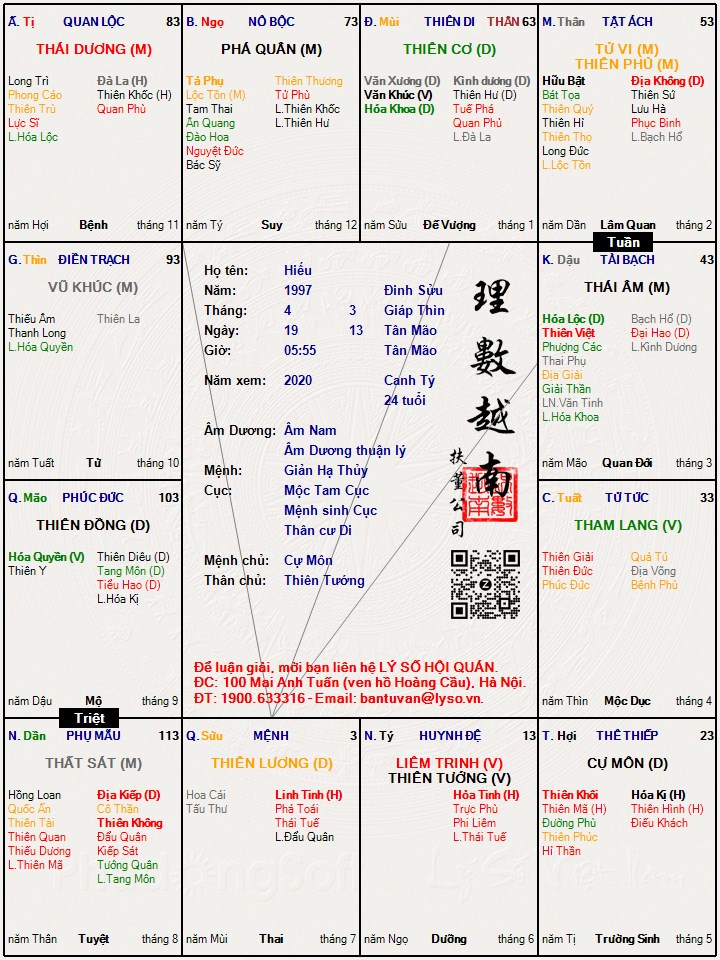 Ấ. Tị QUAN LỘC 83
THÁI DƯƠNG (M)
Long Trì Đà La (H)
Phong Cáo Thiên Khốc (H)
Thiên Trù Quan Phù
Lực Sĩ
L.Hóa Lộc
năm Hợi Bệnh tháng 11
B. Ngọ NÔ BỘC 73
PHÁ QUÂN (M)
Tả Phụ Thiên Thương
Lộc Tồn (M) Tử Phù
Tam Thai L.Thiên Khốc
Ân Quang L.Thiên Hư
Đào Hoa
Nguyệt Đức
Bác Sỹ
năm Tý Suy tháng 12
Đ. Mùi THIÊN DI THÂN 63
THIÊN CƠ (D)
Văn Xương (D) Kình dương (D)
Văn Khúc (V) Thiên Hư (D)
Hóa Khoa (D) Tuế Phá
Quan Phủ
L.Đà La
năm Sửu Đế Vượng tháng 1
M. Thân TẬT ÁCH 53
TỬ VI (M)
THIÊN PHỦ (M)
Hữu Bật Địa Không (D)
Bát Tọa Thiên Sứ
Thiên Quý Lưu Hà
Thiên Hỉ Phục Binh
Thiên Thọ L.Bạch Hổ
Long Đức
L.Lộc Tồn
năm Dần Lâm Quan tháng 2
Tuần
G. Thìn ĐIỀN TRẠCH 93
VŨ KHÚC (M)
Thiếu Âm Thiên La
Thanh Long
L.Hóa Quyền
năm Tuất Tử tháng 10
Họ tên: Hiếu
Năm: 1997 Đinh Sửu
Tháng: 4 3 Giáp Thìn
Ngày: 19 13 Tân Mão
Giờ: 05:55 Tân Mão
Năm xem: 2020 Canh Tý
24 tuổi
Âm Dương: Âm Nam
Âm Dương thuận lý
Mệnh: Giản Hạ Thủy
Cục: Mộc Tam Cục
Mệnh sinh Cục
Thân cư Di
Mệnh chủ: Cự Môn
Thân chủ: Thiên Tướng
理
數
越
南
扶
董
公
司
Z
Để luận giải, mời bạn liên hệ LÝ SỐ HỘI QUÁN.
ĐC: 100 Mai Anh Tuấn (ven hồ Hoàng Cầu), Hà Nội.
ĐT: 1900.633316 - Email: bantuvan@lyso.vn.
K. Dậu TÀI BẠCH 43
THÁI ÂM (M)
Hóa Lộc (D) Bạch Hổ (D)
Thiên Việt Đại Hao (D)
Phượng Các L.Kình Dương
Thai Phụ
Địa Giải
Giải Thần
LN.Văn Tinh
L.Hóa Khoa
năm Mão Quan Đới tháng 3
Q. Mão PHÚC ĐỨC 103
THIÊN ĐỒNG (D)
Hóa Quyền (V) Thiên Diêu (D)
Thiên Y Tang Môn (D)
Tiểu Hao (D)
L.Hóa Kị
năm Dậu Mộ tháng 9
Triệt
C. Tuất TỬ TỨC 33
THAM LANG (V)
Thiên Giải Quả Tú
Thiên Đức Địa Võng
Phúc Đức Bệnh Phù
năm Thìn Mộc Dục tháng 4
N. Dần PHỤ MẪU 113
THẤT SÁT (M)
Hồng Loan Địa Kiếp (D)
Quốc Ấn Cô Thần
Thiên Tài Thiên Không
Thiên Quan Đẩu Quân
Thiếu Dương Kiếp Sát
L.Thiên Mã Tướng Quân
L.Tang Môn
năm Thân Tuyệt tháng 8
Q. Sửu MỆNH 3
THIÊN LƯƠNG (D)
Hoa Cái Linh Tinh (H)
Tấu Thư Phá Toái
Thái Tuế
L.Đẩu Quân
năm Mùi Thai tháng 7
N. Tý HUYNH ĐỆ 13
LIÊM TRINH (V)
THIÊN TƯỚNG (V)
Hỏa Tinh (H)
Trực Phù
Phi Liêm
L.Thái Tuế
năm Ngọ Dưỡng tháng 6
T. Hợi THÊ THIẾP 23
CỰ MÔN (D)
Thiên Khôi Hóa Kị (H)
Thiên Mã (H) Thiên Hình (H)
Đường Phù Điếu Khách
Thiên Phúc
Hỉ Thần
năm Tị Trường Sinh tháng 5